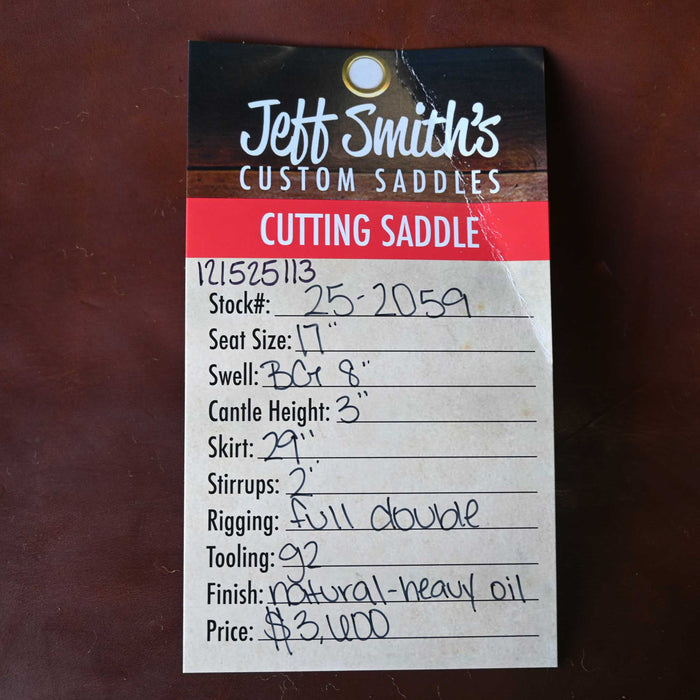 Jeff Smith's
CUSTOM SADDLES
CUTTING SADDLE
121525113
Stock#: 25-2059
Seat Size: 17"
Swell: BG 8"
Cantle Height: 3"
Skirt: 29"
Stirrups: 2"
Rigging: full double
Tooling: 92
Finish: natural-heavy oil
Price: $3,600